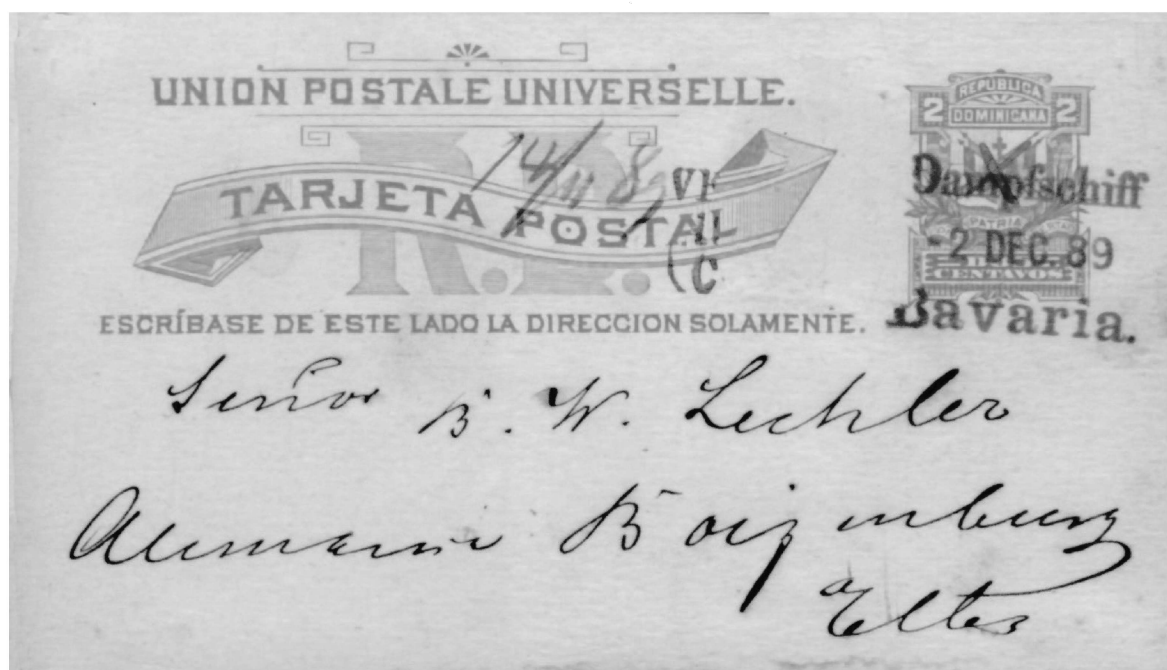 UNION POSTALE UNIVERSELLE.
R.D.
TARJETA POSTAL
14/11 89
ESCRÍBASE DE ESTE LADO LA DIRECCION SOLAMENTE.
REPÚBLICA
2 DOMINICANA 2
PATRIA
CENTAVOS
Dampfschiff
-2 DEC. 89
Bavaria.
Señor B. W. Lechler
Alemania Boizenburg